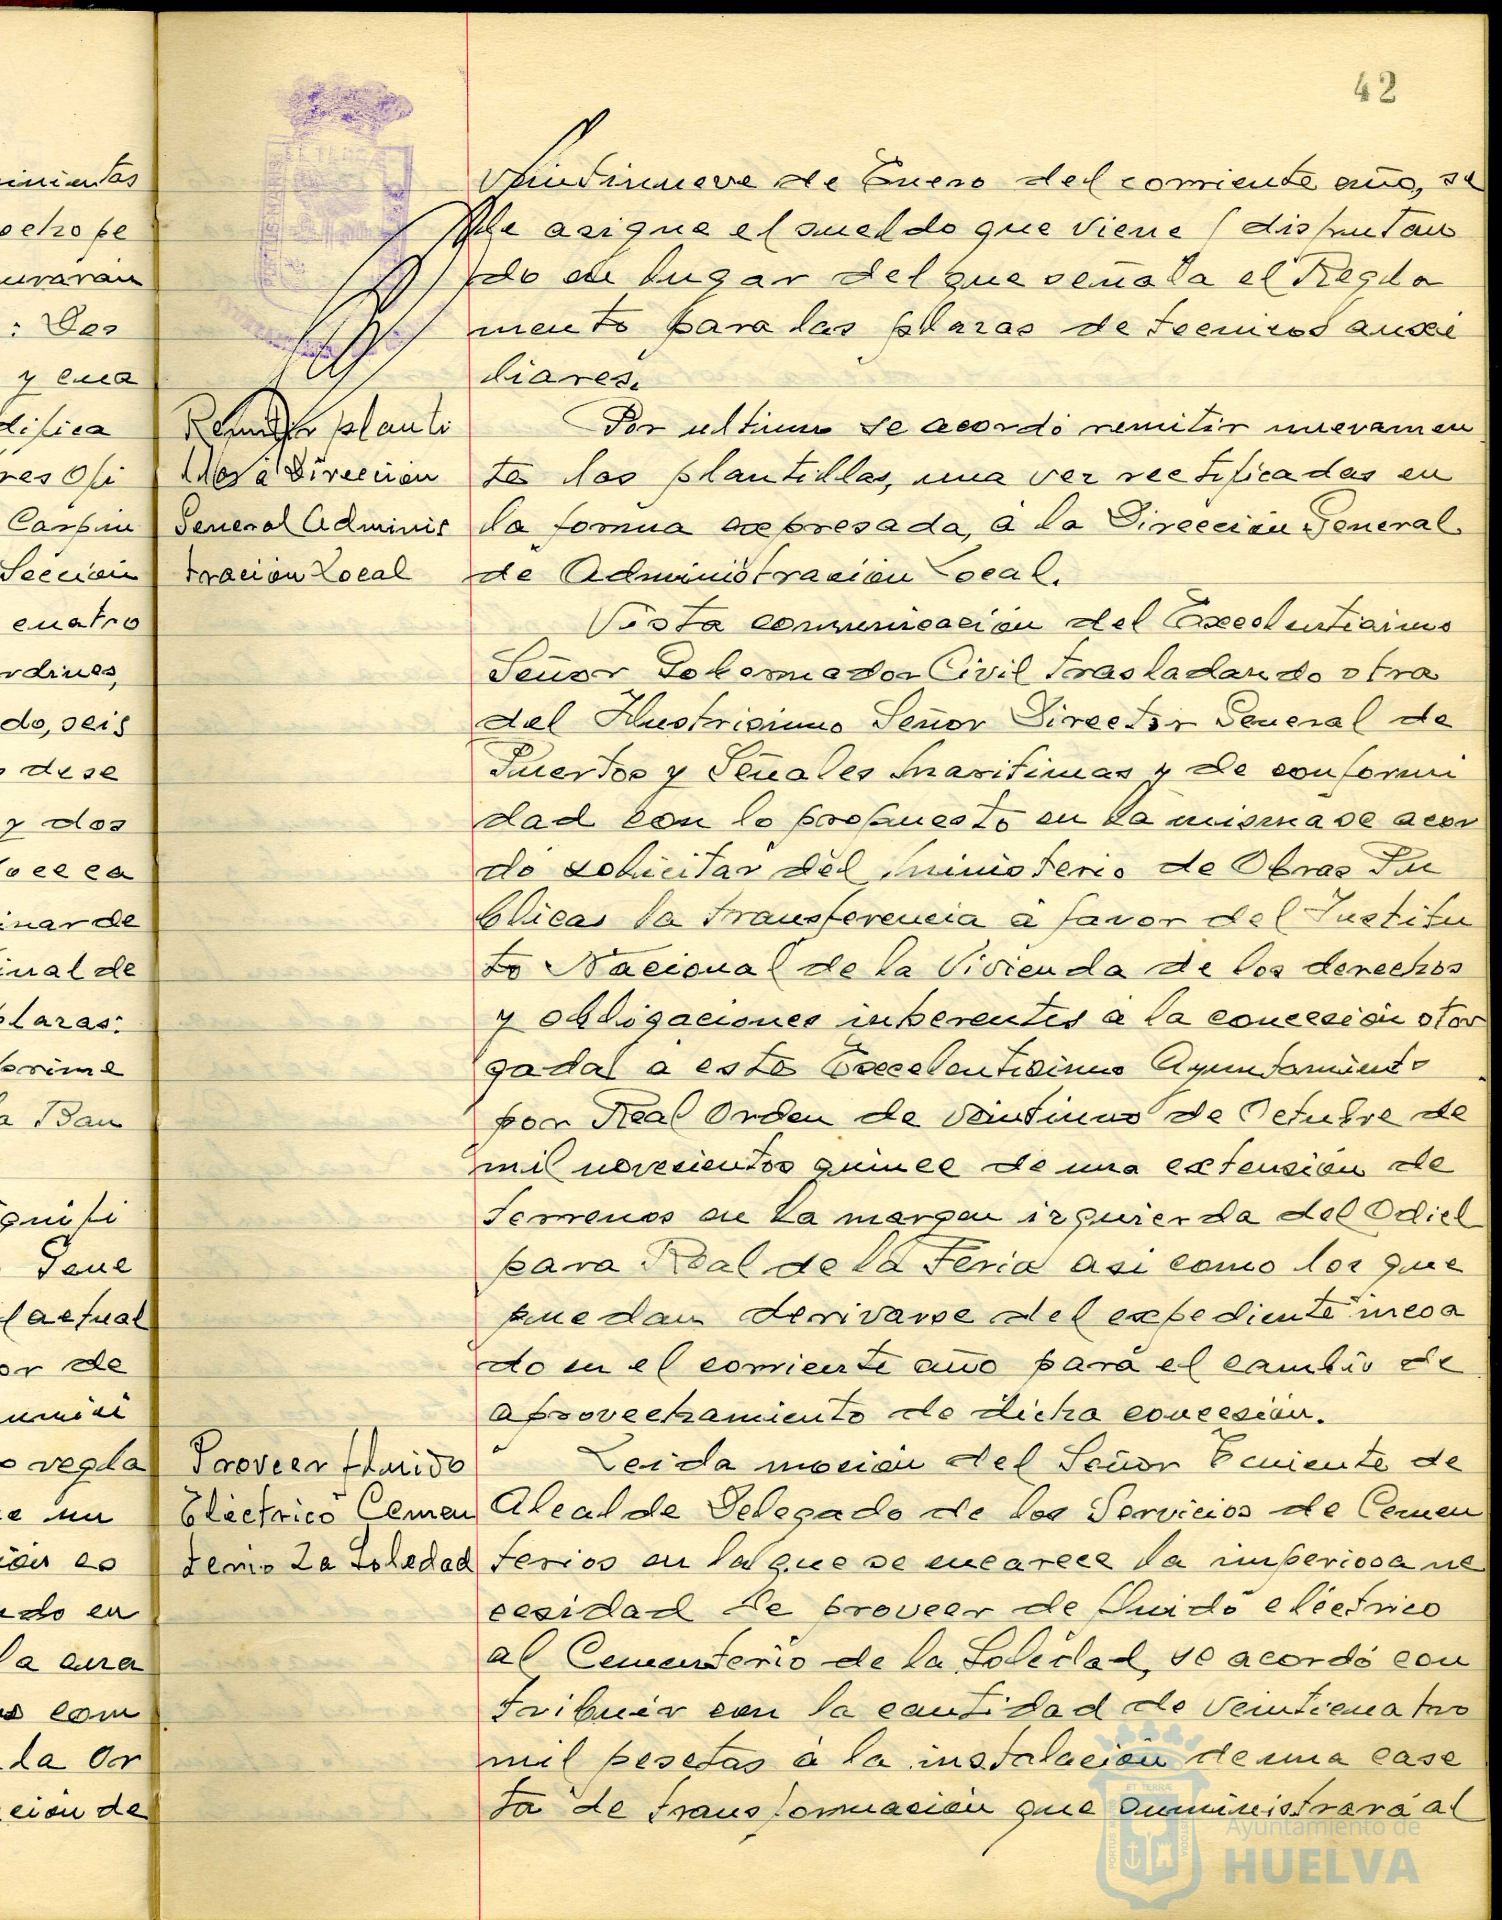 42
veintinueve de Enero del corriente año, se
le asigne el sueldo que viene disfrutan
do en lugar del que señala el Regla
mento para las plazas de tecnicos auxi
liares.
Remitir planti
llas á Dirección
General Adminis
tración Local
Por ultimo se acordó remitir nuevamen
te las plantillas, una vez rectificadas en
la forma expresada, á la Dirección General
de Administración Local.
Vista comunicación del Excelentisimo
Señor Gobernador Civil trasladando otra
del Ilustrisimo Señor Director General de
Puertos y Señales Maritimas y de conformi
dad con lo propuesto en la misma se acor
dó solicitar del Ministerio de Obras Pu
blicas la transferencia á favor del Institu
to Nacional de la Vivienda de los derechos
y obligaciones inherentes á la concesión otor
gada á este Excelentisimo Ayuntamiento
por Real Orden de veintiuno de Octubre de
mil novecientos quince de una extensión de
terrenos en la margen izquierda del Odiel
para Real de la Feria asi como los que
puedan derivarse del expediente incoa
do en el corriente año para el cambio de
aprovechamiento de dicha concesión.
Proveer fluido
Eléctrico Cemen
terio La Soledad
Leida moción del Señor Teniente de
Alcalde Delegado de los Servicios de Cemen
terios en la que se encarece la imperiosa ne
cesidad de proveer de fluido eléctrico
al Cementerio de la Soledad, se acordó con
tribuir con la cantidad de veinticuatro
mil pesetas á la instalación de una case
ta de transformación que suministrará al
Ayuntamiento de
HUELVA
inientas
ocho pe
uraran
: Dos
y cua
difica
res Ofi
Carpin
Sección
cuatro
rdines,
do, seis
de se
y dos
inar de
inal de
plazas:
prime
a Ban
Gene
l actual
or de
o regla
e un
ión es
ndo en
la cura
com
la Or
ción de